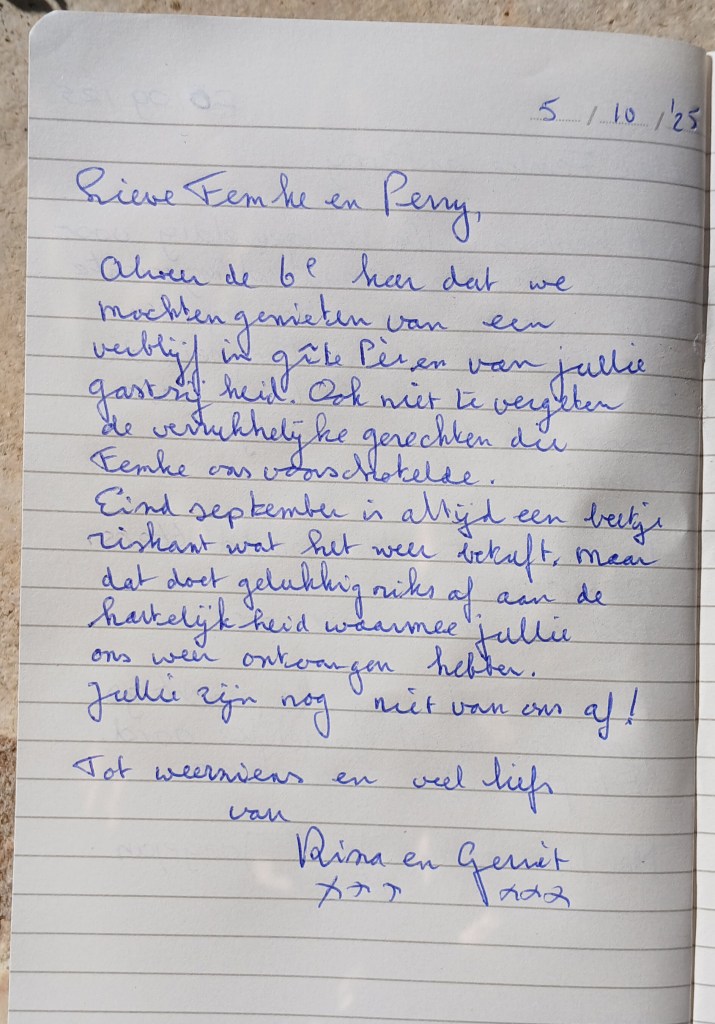 5 / 10 / '25
Lieve Femke en Perry,
Alweer de 6e keer dat we
mochten genieten van een
verblijf in gîte Pèr en van jullie
gastvrijheid. Ook niet te vergeten
de verrukkelijke gerechten die
Femke ons voorschotelde.
Eind september is altijd een beetje
riskant wat het weer betreft, maar
dat doet gelukkig niks af aan de
hartelijkheid waarmee jullie
ons weer ontvangen hebben.
Jullie zijn nog niet van ons af!
Tot weerziens en veel liefs
van
Rina en Gerriet
xxx xxx